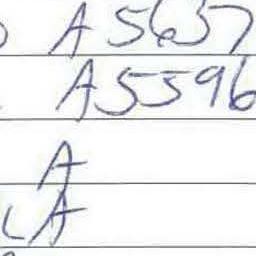 A 5657
A5596
A
A